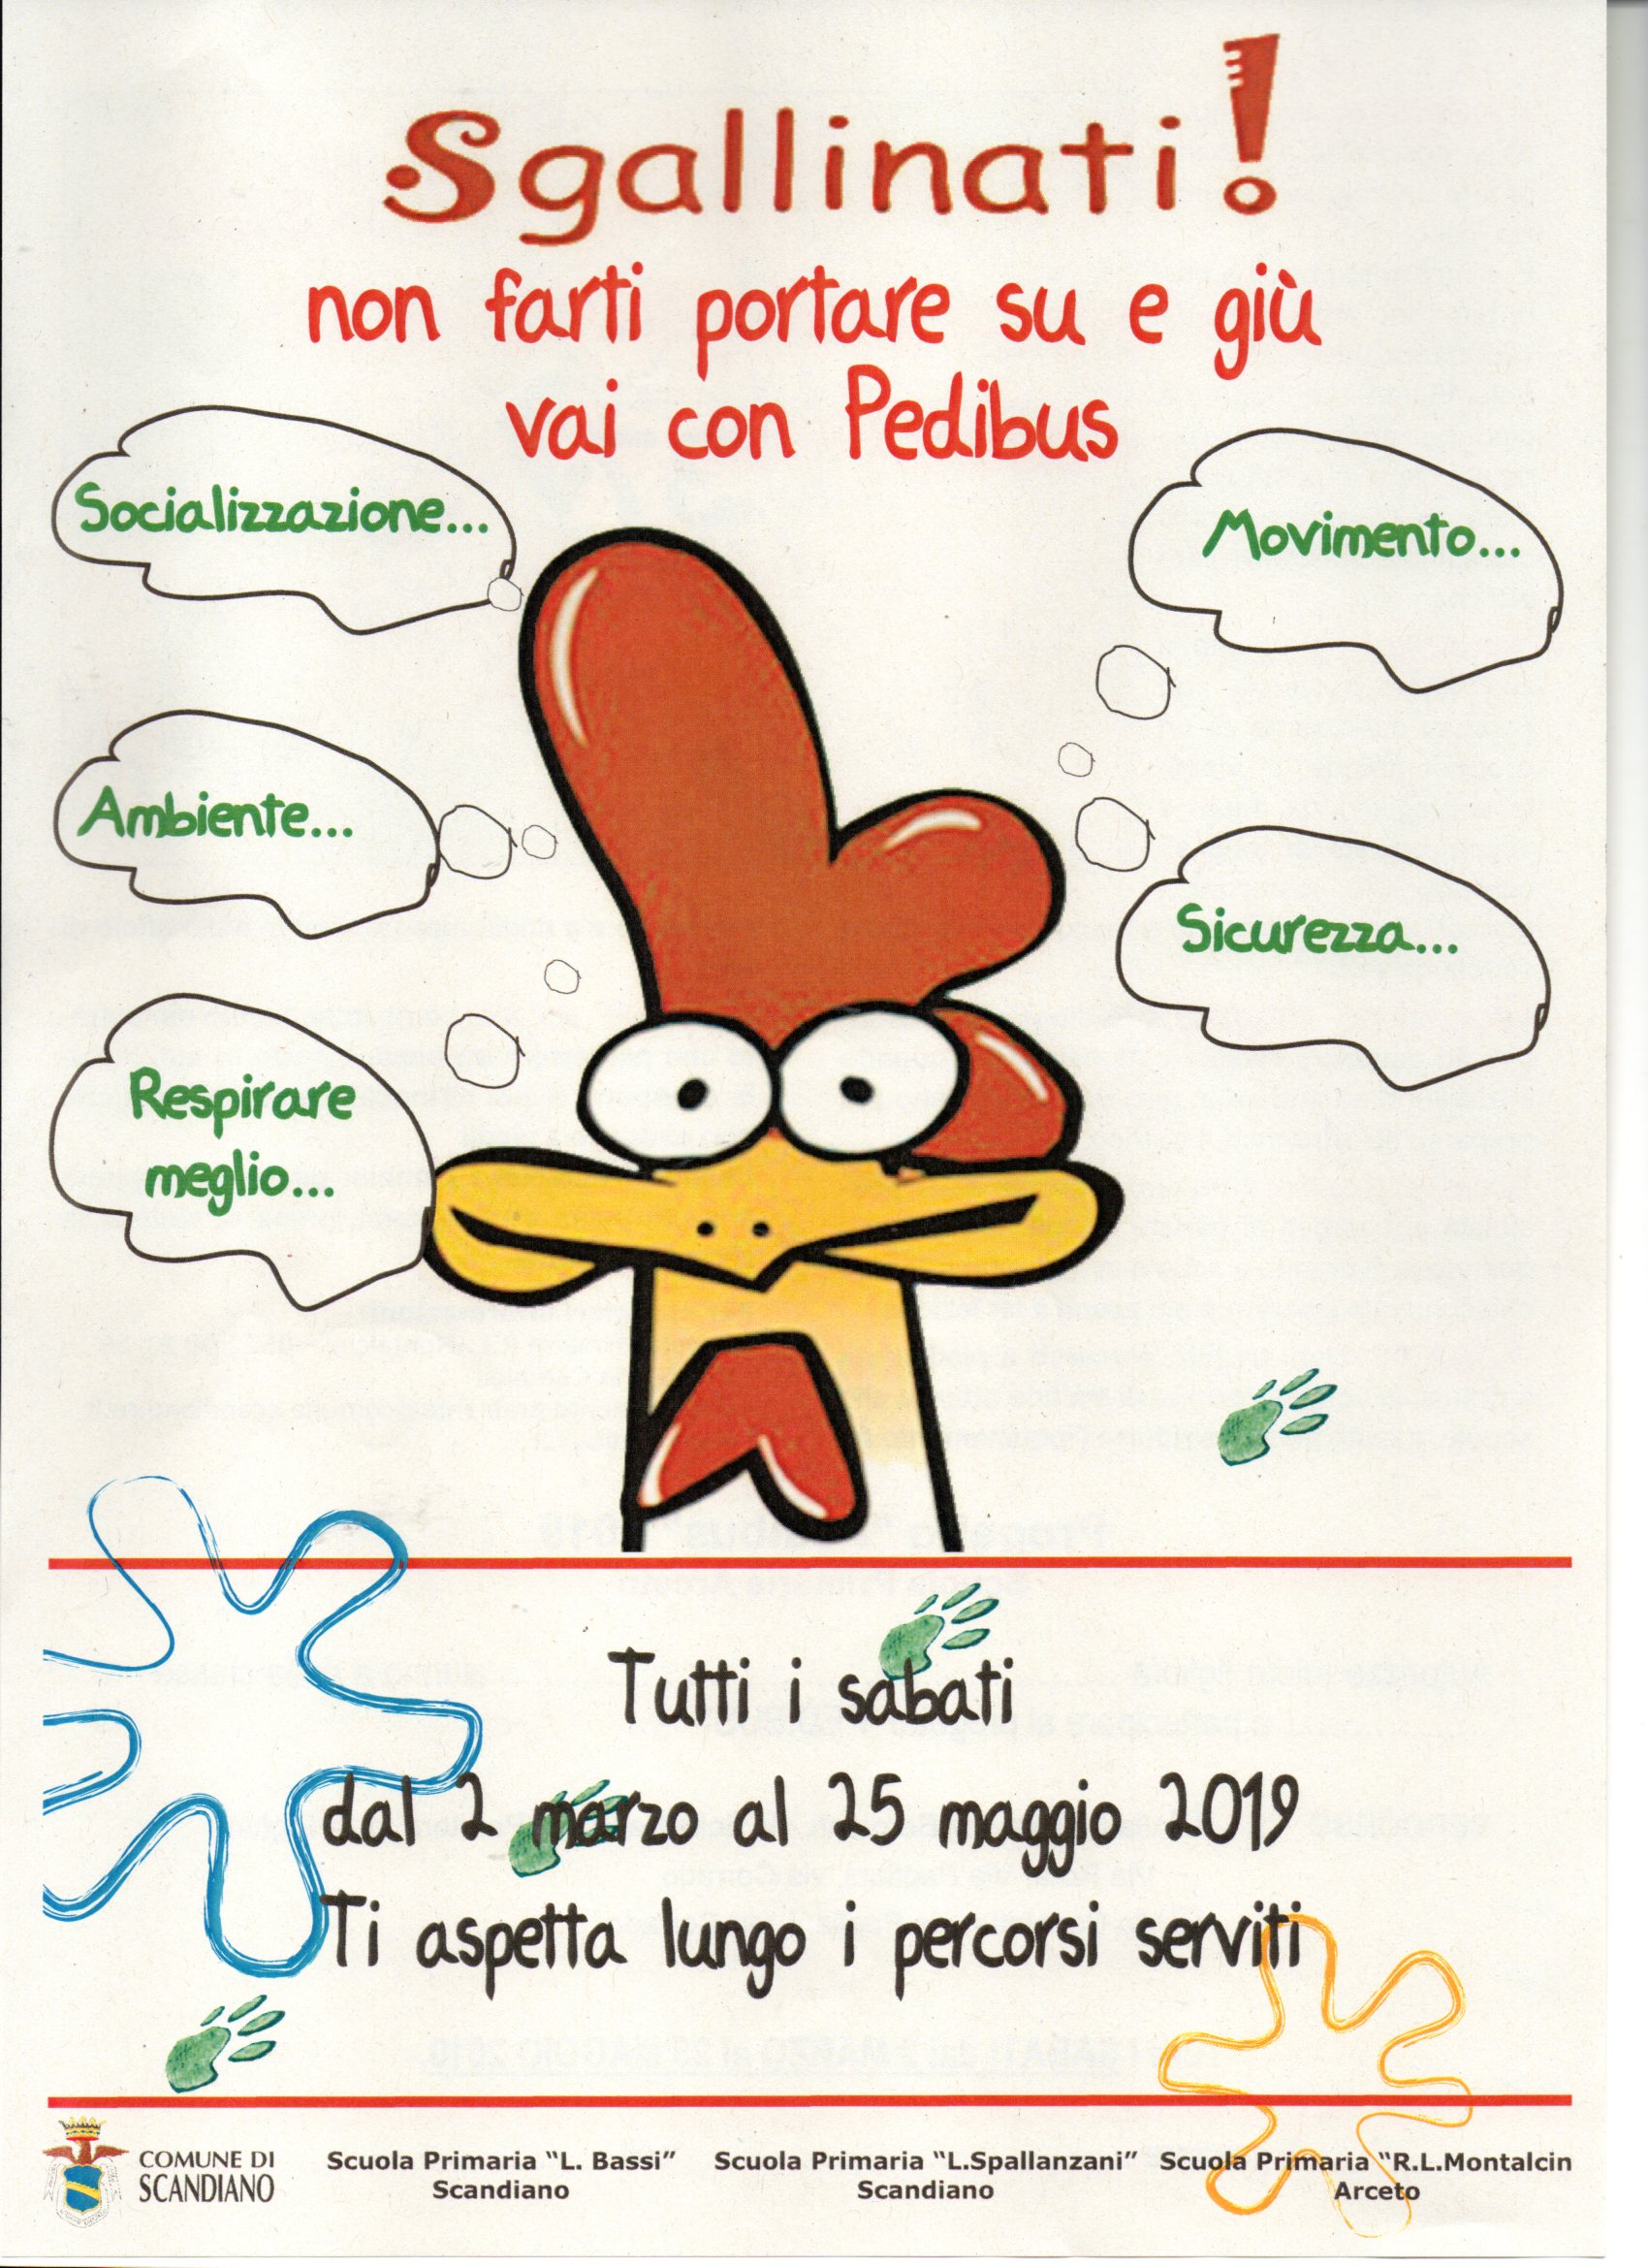 Sgallinati!
non farti portare su e giù
vai con Pedibus
Socializzazione...
Movimento...
Ambiente...
Sicurezza...
Respirare
meglio...
Tutti i sabati
dal 2 marzo al 25 maggio 2019
Ti aspetta lungo i percorsi serviti
COMUNE DI
SCANDIANO
Scuola Primaria “L. Bassi”
Scandiano
Scuola Primaria “L.Spallanzani”
Scandiano
Scuola Primaria “R.L.Montalcin
Arceto